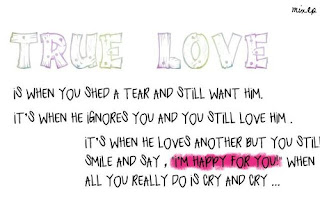 mixlp
TRUE LOVE
is when you shed a tear and still want him.
it's when he ignores you and you still love him .
it's when he loves another but you still
smile and say , "i'm happy for you!" when
all you really do is cry and cry ...